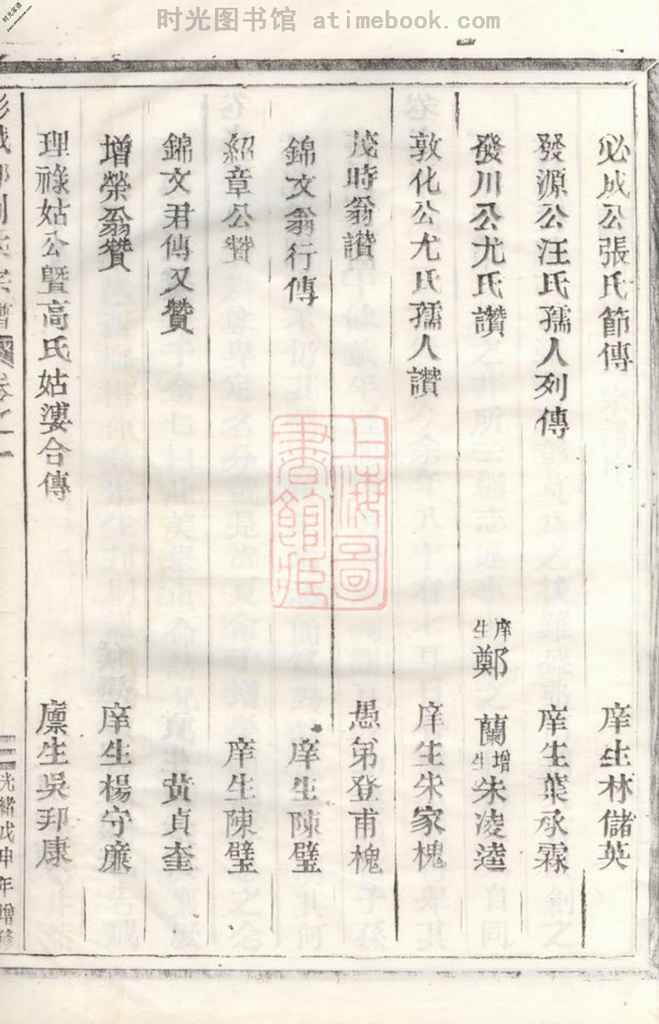 时光图书馆 atimebook.com
必成公張氏節傳 庠生林儲英
發源公汪氏孺人列傳 庠生葉承霖
發川公尤氏讚 庠生鄭之蘭 增生朱凌逵
敦化公尤氏孺人讚 庠生朱家槐
茂時翁讚 愚弟登甫槐
錦文翁行傳 庠生陳璧
紹章公贊 庠生陳璧
錦文君傳又贊 黃貞奎
增榮翁贊 庠生楊守廉
理祿姑公暨高氏姑婆合傳 廩生吳邦康
彭城郡劉氏宗譜 卷之一 光緒戊申年增修
上海圖書館藏